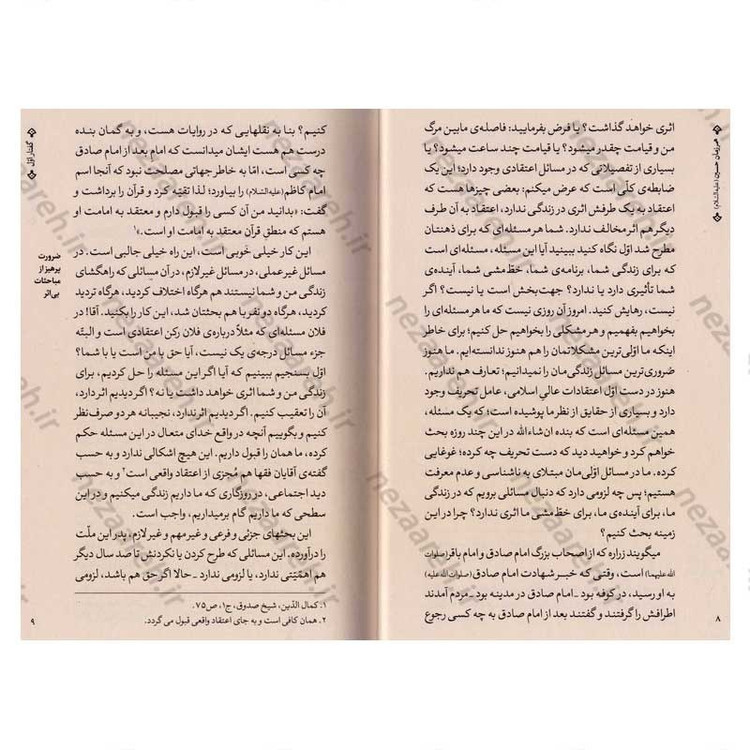 همرزمان حسین (علیه‌السلام)
اثری خواهد گذاشت؟ یا فرض بفرمایید: فاصله‌ی مابین مرگ
من و قیامت چقدر میشود؟ یا قیامت چند ساعت میشود؟ یا
بسیاری از تفصیلاتی که در مسائل اعتقادی وجود دارد؛ این یک
ضابطه‌ی کلّی است که عرض میکنم: بعضی چیزها هست که
اعتقاد به یک طرفش اثری در زندگی ندارد، اعتقاد به آن طرف
دیگر هم اثر مخالف ندارد. شما هر مسئله‌ای که برای ذهنتان
مطرح شد اوّل نگاه کنید ببینید آیا این مسئله، مسئله‌ای است
که برای زندگی شما، برنامه‌ی شما، خطّ‌مشی شما، آینده‌ی
شما تأثیری دارد یا ندارد؟ جهت‌بخش است یا نیست؟ اگر
نیست، رهایش کنید. امروز آن روزی نیست که ما هر مسئله‌ای را
بخواهیم بفهمیم و هر مشکلی را بخواهیم حل کنیم؛ برای خاطر
اینکه ما اوّلی‌ترین مشکلاتمان را هم هنوز ندانسته‌ایم. ما هنوز
ضروری‌ترین مسائل زندگی‌مان را نمیدانیم؛ تعارف هم نداریم.
هنوز در دست اوّل اعتقادات عالی اسلامی، عامل تحریف وجود
دارد و بسیاری از حقایق از نظر ما پوشیده است؛ که یک مسئله،
همین مسئله‌ای است که بنده ان‌شاءالله در این چند روزه بحث
خواهم کرد و خواهید دید که دست تحریف چه کرده؛ غوغایی
کرده. ما در مسائل اوّلی‌مان مبتلای به ناشناسی و عدم معرفت
هستیم؛ پس چه لزومی دارد که دنبال مسائلی برویم که در زندگی
ما، برای آینده‌ی ما، برای خطّ‌مشی ما اثری ندارد؟ چرا در این
زمینه بحث کنیم؟
میگویند زراره که از اصحاب بزرگ امام صادق و امام باقر (صلوات
الله علیهما) است، وقتی که خبر شهادت امام صادق (صلوات الله علیه)
به او رسید، در کوفه بود ـ امام صادق در مدینه بود ـ مردم آمدند
اطرافش را گرفتند و گفتند بعد از امام صادق به چه کسی رجوع
۸
گفتار اوّل
کنیم؟ بنا به نقلهایی که در روایات هست، و به گمان بنده
درست هم هست ایشان میدانست که امام بعد از امام صادق
چه کسی است، امّا به خاطر جهاتی مصلحت نبود که آنجا اسم
امام کاظم (علیه‌السّلام) را بیاورد؛ لذا تقیّه کرد و قرآن را برداشت و
گفت: «بدانید من آن کسی را قبول دارم و معتقد به امامت او
هستم که منطق قرآن معتقد به امامت او است.»۱
ضرورت
پرهیز از
مباحثات
بی‌اثر
این کار خیلی خوبی است، این راه خیلی جالبی است. در
مسائل غیرعملی، در مسائل غیرلازم، در آن مسائلی که راهگشای
زندگی من و شما نیستند هم هرگاه اختلاف کردید، هرگاه تردید
کردید، هرگاه دو نفر با هم بحثتان شد، این کار را بکنید. آقا! در
فلان مسئله‌ای که مثلاً درباره‌ی فلان رکن اعتقادی است و البتّه
جزء مسائل درجه‌ی یک نیست، آیا حق با من است یا با شما؟
اوّل بسنجیم ببینیم که آیا اگر این مسئله را حل کردیم، برای
زندگی من و شما اثری خواهد داشت یا نه؟ اگر دیدیم اثر دارد،
آن را تعقیب کنیم. اگر دیدیم اثر ندارد، نجیبانه هر دو صرف‌نظر
کنیم و بگوییم آنچه در واقع خدای متعال در این مسئله حکم
کرده، ما همان را قبول داریم. این هیچ اشکالی ندارد و به حسب
گفته‌ی آقایان فقها هم مُجزی از اعتقاد واقعی است۲ و به حسب
دید اجتماعی، در روزگاری که ما داریم زندگی میکنیم و در این
سطحی که ما داریم گام برمیداریم، واجب است.
این بحثهای جزئی و فرعی و غیرمهم و غیرلازم، پدر این ملّت
را درآورده. این مسائلی که طرح کردن یا نکردنش تا صد سال دیگر
هم اهمّیّتی ندارد، یا لزومی ندارد ـ حالا اگر حق هم باشد، لزومی
۱. کمال الدّین، شیخ صدوق، ج۱، ص۷۵.
۲. همان کافی است و به جای اعتقاد واقعی قبول می گردد.
۹
nezaareh.ir